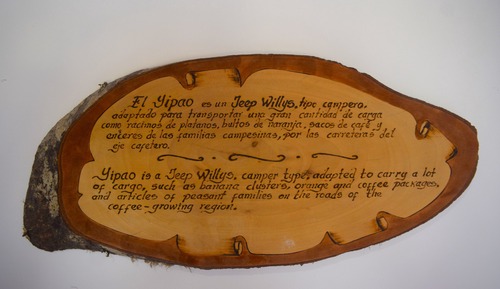 El Yipao es un Jeep Willys, tipo campero,
adaptado para transportar una gran cantidad de carga
como racimos de platanos, bultos de naranja, sacos de café y
enteres de las familias campesinas, por las carreteras del
eje cafetero.
Yipao is a Jeep Willys, camper type, adapted to carry a lot
of cargo, such as banana clusters, orange and coffee packages,
and articles of peasant families on the roads of the
coffee-growing region.